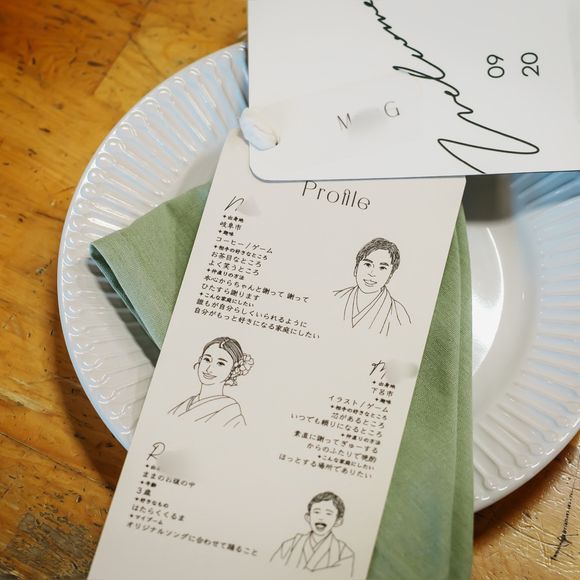 Welcome
09
20
M G
Profile
◆出身地
岐阜市
◆趣味
コーヒー/ゲーム
◆相手の好きなところ
お茶目なところ
よく笑うところ
◆仲直りの方法
本心からちゃんと謝って 謝って
ひたすら謝ります
◆こんな家庭にしたい
誰もが自分らしくいられるように
自分がもっと好きになる家庭にしたい
◆出身地
下呂市
◆趣味
イラスト/ゲーム
◆相手の好きなところ
芯があるところ
いつでも頼りになるところ
◆仲直りの方法
素直に謝ってぎゅーする
からのふたりで晩酌
◆こんな家庭にしたい
ほっとする場所でありたい
R
ままのお腹の中
◆年齢
3歳
◆好きなもの
はたらくくるま
◆マイブーム
オリジナルソングに合わせて踊ること